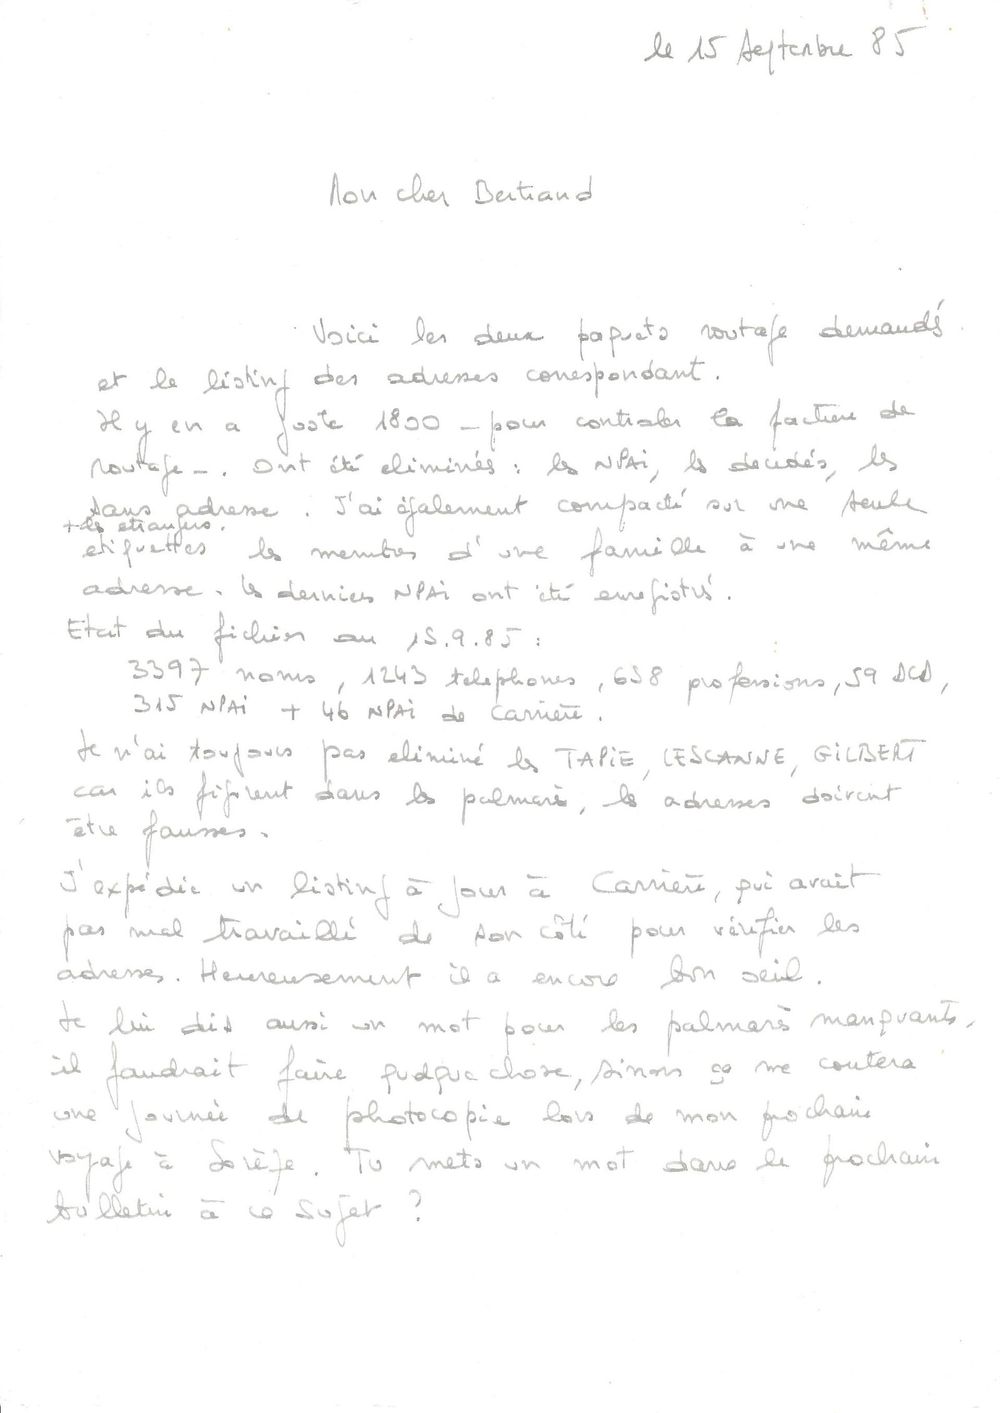 le 15 Septembre 85
Mon cher Bertrand
Voici les deux paquets routage demandés
et le listing des adresses correspondant.
Il y en a juste 1800 - pour controler la facture de
routage -. Ont été eliminés : les NPAi, les decédés, les
sans adresse. J'ai également compacté sur une seule
+ les etrangers.
etiquettes les membres d'une famille à une même
adresse. les derniers NPAi ont été enregistrés.
Etat du fichier au 15.9.85 :
3397 noms, 1243 telephones, 658 professions, 59 DCD,
315 NPAi + 46 NPAi de Carrière.
Je n'ai toujours pas eliminé les TAPiE, LESCANNE, GiLBERT
car ils figurent dans les palmarès, les adresses doivent
être fausses.
J'expédie un listing à jour à Carrière, qui avait
pas mal travaillé de son côté pour vérifier les
adresses. Heureusement il a encore bon oeil.
Je lui dis aussi un mot pour les palmarès manquants,
il faudrait faire quelque chose, sinon ça me coutera
une journée de photocopie lors de mon prochain
voyage à Sorèze. Tu mets un mot dans le prochain
bulletin à ce sujet ?